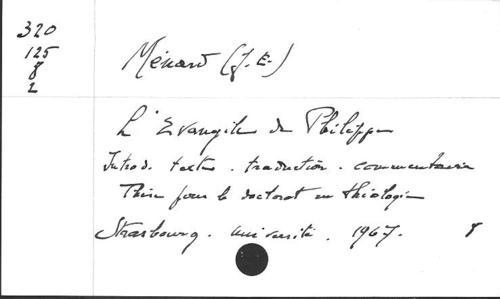 320
125
8
2
Ménard (J. E.)
L'Evangile de Philippe
Introd. texte. traduction. commentaire
Thèse pour le doctorat en théologie
Strasbourg. université. 1967. 8